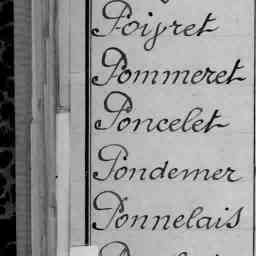 Poiyret
Pommeret
Poncelet
Pondemer
Ponnelais